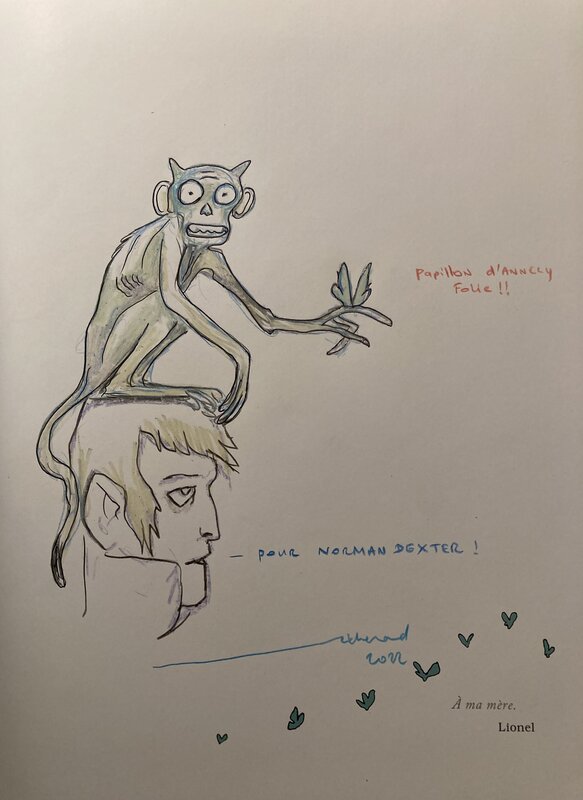 Papillon d'ANNECY
Folie!!
– POUR NORMAN DEXTER !
2022
À ma mère.
Lionel